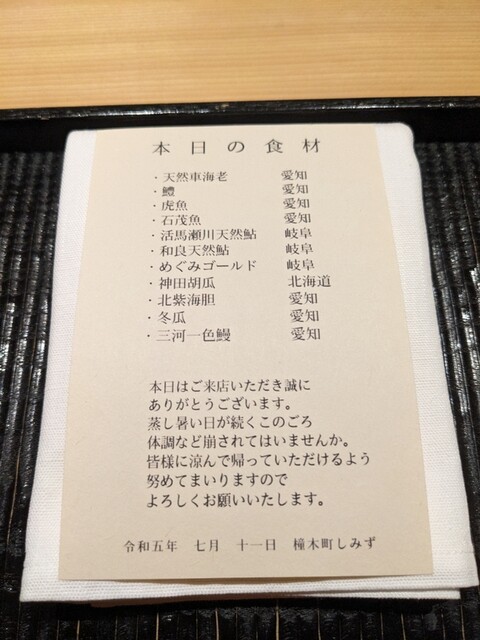 本日の食材
・天然車海老 愛知
・鱧 愛知
・虎魚 愛知
・石茂魚 愛知
・活馬瀬川天然鮎 岐阜
・和良天然鮎 岐阜
・めぐみゴールド 岐阜
・神田胡瓜 北海道
・北紫海胆 愛知
・冬瓜 愛知
・三河一色鰻 愛知
本日はご来店いただき誠に
ありがとうございます。
蒸し暑い日が続くこのごろ
体調など崩されてはいませんか。
皆様に涼んで帰っていただけるよう
努めてまいりますので
よろしくお願いいたします。
令和五年 七月 十一日 橦木町しみず